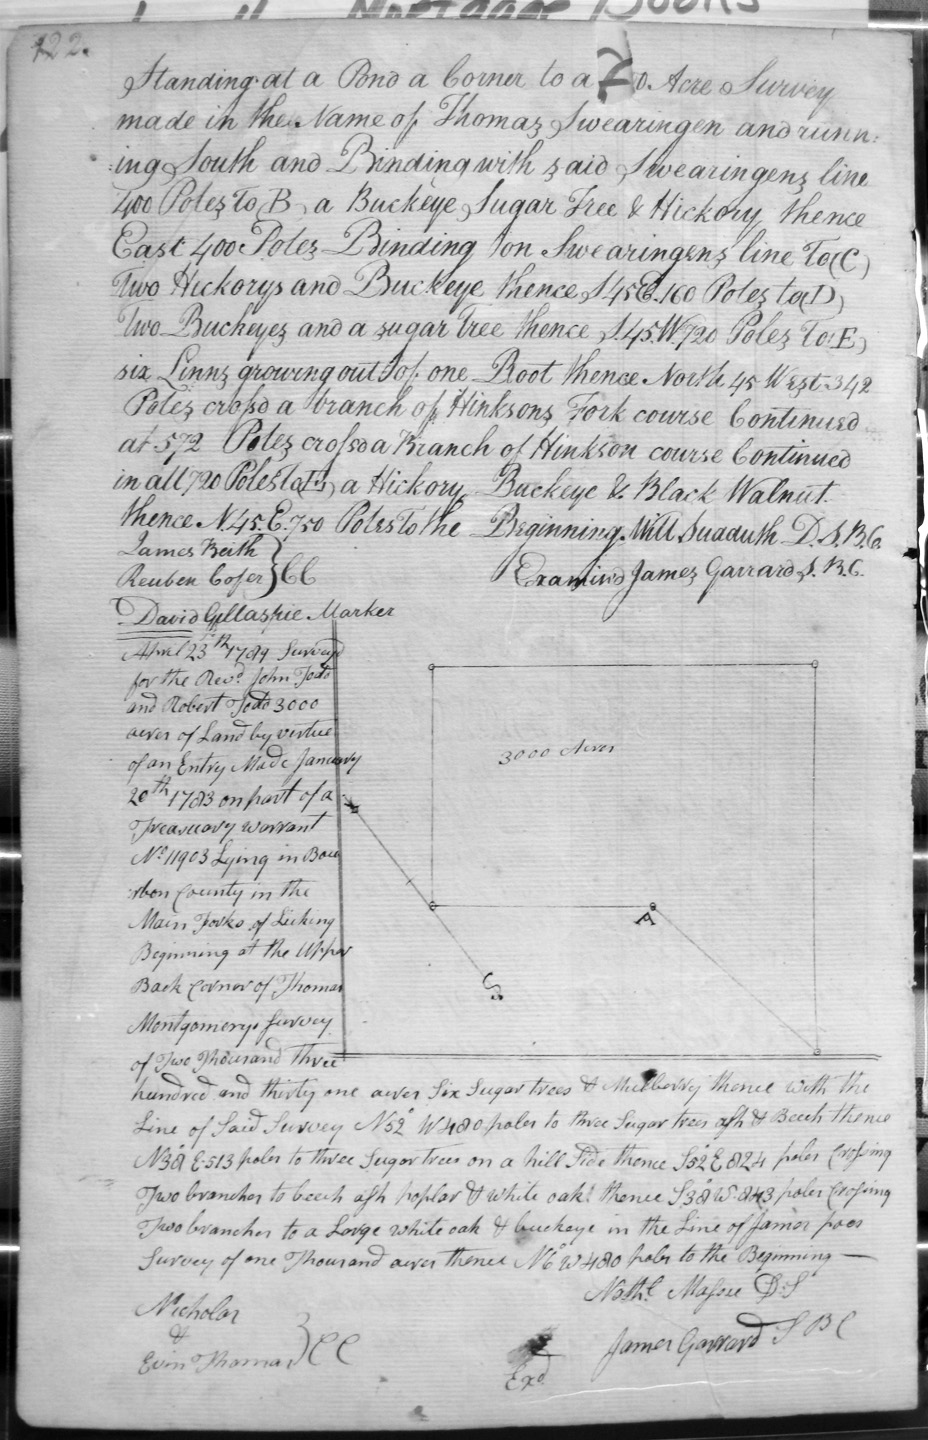 Mortgage Books
122.
Standing at a Pond a Corner to a 0. Acre Survey
made in the Name of Thomas Swearingen and runn:
:ing South and Binding with said Swearingens line
400 Poles to (B) a Buckeye Sugar Tree & Hickory thence
East 400 Poles Binding on Swearingens line To (C)
Two Hickorys and Buckeye thence S 45 E. 160 Poles to (D)
Two Buckeyes and a sugar tree thence S.45.W. 720 Poles To (E)
six Linns growing out of one Root thence North 45 West 342
Poles crossd a branch of Hinksons Fork course Continued
at 572 Poles crossd a Branch of Hinkson course Continued
in all 720 Poles to (F) a Hickory Buckeye & Black Walnut.
thence N.45.E. 750 Poles To the Beginning. Will Suduth D.S.B.C.
James Beith
Reuben Cofer } CC
Examin'd James Garrard S. B.C.
David Gillaspie Marker
April 23th 1789 Survey'd
for the Revd. John Todd
and Robert Todd 3000
acres of Land by virtue
of an Entry Made January
20th 1783 on part of a
Treasuary warrant
No. 11903 Lying in Bou
rbon County in the
Main Forks of Licking
Beginning at the Upper
Back Corner of Thomas
Montgomerys Survey
of Two Thousand three
3000 Acres
A
S
hundred and thirty one acres Six Sugar trees & Mulberry thence with the
Line of Said Survey N52° W 480 poles to three Sugar trees ash & Beech thence
N38° E 513 poles to three Sugar trees on a hill Side thence S52° E 824 poles Crossing
Two branches to beech ash poplar & white oak thence S.38° W. 843 poles Crossing
Two branches to a Large white oak & buckeye in the Line of James
Survey of one Thousand acres thence N6° W 480 poles to the Beginning —
Nathl. Massie D.S
Nicholas
&
Evin Thomas } CC
Exd.
James Garrard S B C